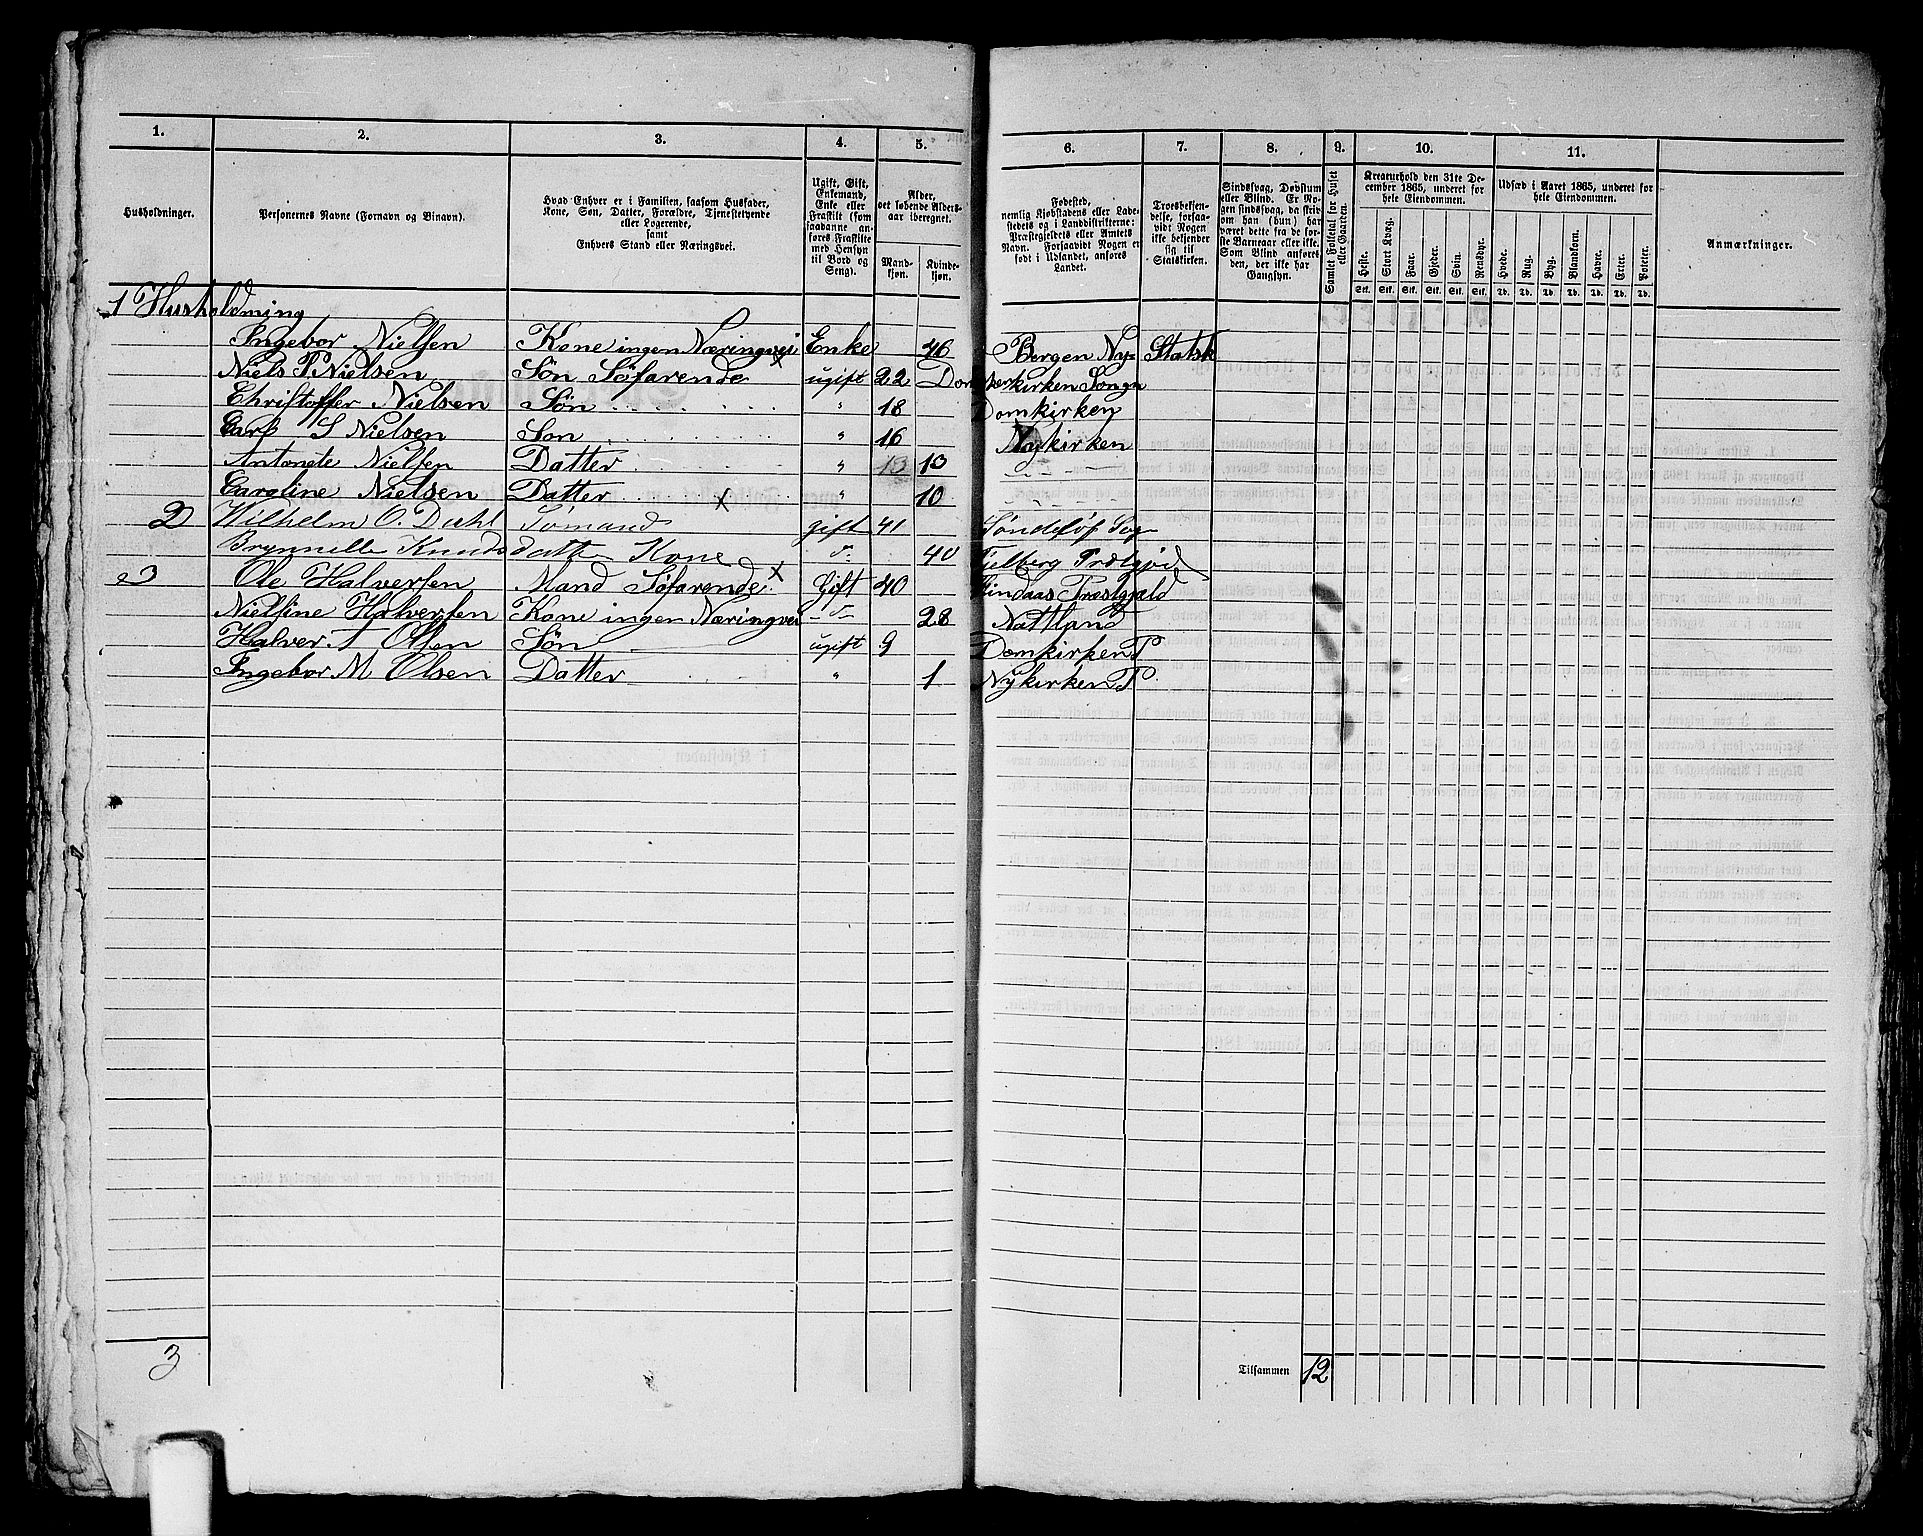 1. 2. 3. 4. 5. 6. 7. 8. 9. 10. 11.
Husholdninger.
Personernes Navne (Fornavn og Binavn).
Hvad Enhver er i Familien, saasom Husfader,
Kone, Søn, Datter, Forældre, Tjenestetyende
eller Logerende,
samt
Enhvers Stand eller Næringsvei.
Ugift, Gift,
Enkemand,
Enke eller
Fraskilt (som
saadanne an-
føres Fraskilte
med Hensyn
til Bord og
Seng).
Alder,
det løbende Alders-
aar iberegnet.
Mand-
kjøn.
Kvinde-
kjøn.
Fødested,
nemlig Kjøbstadens eller Lade-
stedets og i Landdistrikterne:
Præstegjeldets eller Amtets
Navn. Forsaavidt Nogen er
født i Udlandet, anføres
Landet.
Troesbekjen-
delse, forsaa-
vidt Nogen
ikke bekjender
sig til
Statskirken.
Sindssvag, Døvstum
eller Blind. Er No-
gen sindssvag, da skriv
om han (hun) har
været dette fra de før-
ste Barneaar eller ikke.
Som Blind anføres
den, der ikke har
Gangsyn.
Samlet Folketal for Huset
eller Gaarden.
Kreaturhold den 31te De-
cember 1865, underet for
hele Eiendommen.
Heste. Stort Kvæg. Faar. Gjeder. Svin. Rensdyr.
Stk. Stk. Stk. Stk. Stk. Stk.
Udsæd i Aaret 1865, underet for
hele Eiendommen.
Hvede. Rug. Byg. Blandkorn. Havre. Erter. Poteter.
Td. Td. Td. Td. Td. Td. Td.
Anmærkninger.
1 Husholdning
Ingebor Nielsen Kone ingen Næringvei Enke 46 Bergen Ny- Statsk
Niels P Nielsen Søn Søfarende x ugift 22 Domkirken Songn
Christoffer Nielsen Søn " 18 Domkirken
Carl S Nielsen Søn " 16 Nykirken
Antonete Nielsen Datter " 13 13 - " -
Caroline Nielsen Datter " 10 - " -
2 Wilhelm O. Dahl Sømand x gift 41 Søndeløf Sog
Brynnille Knudsdatter Kone " 40 Fjelberg Præstgjæld
3 Ole Halversen Mand Søfarende x Gift 40 Lindaas Præstgjald
Nielsine Halversen Kone ingen Næringvei - " - 28 Nattland
Halver A Olsen Søn ugift 9 Domkirken P
Ingebor M Olsen Datter " 1 Nykirken P
3
Tilsammen 12